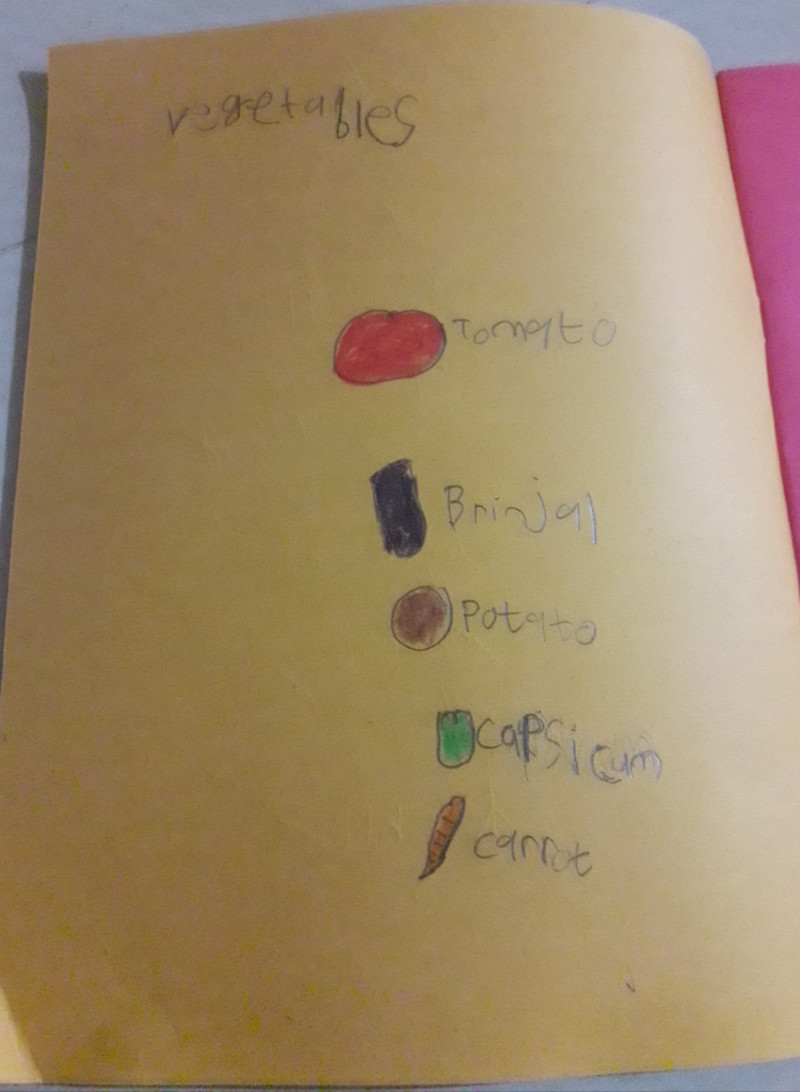 vegetables
Tomato
Brinjal
Potato
Capsicum
carrot